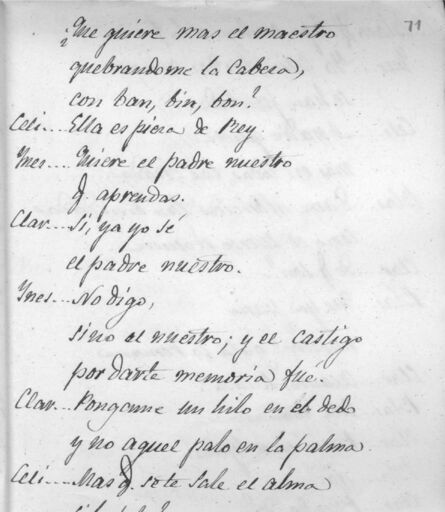 71
¿Que quiere mas el maestro
quebrandome la cabeza,
con ban, bin, bon?
Celi... Ella es pieza de Rey.
Ynes... Quiere el padre nuestro
q. aprendas.
Clar... Si, ya yo sé
el padre nuestro.
Ynes... No digo,
sino el nuestro; y el castigo
por darte memoria fué.
Clar... Pongame un hilo en el dedo
y no aquel palo en la palma.
Celi... Mas q. se te sale el alma